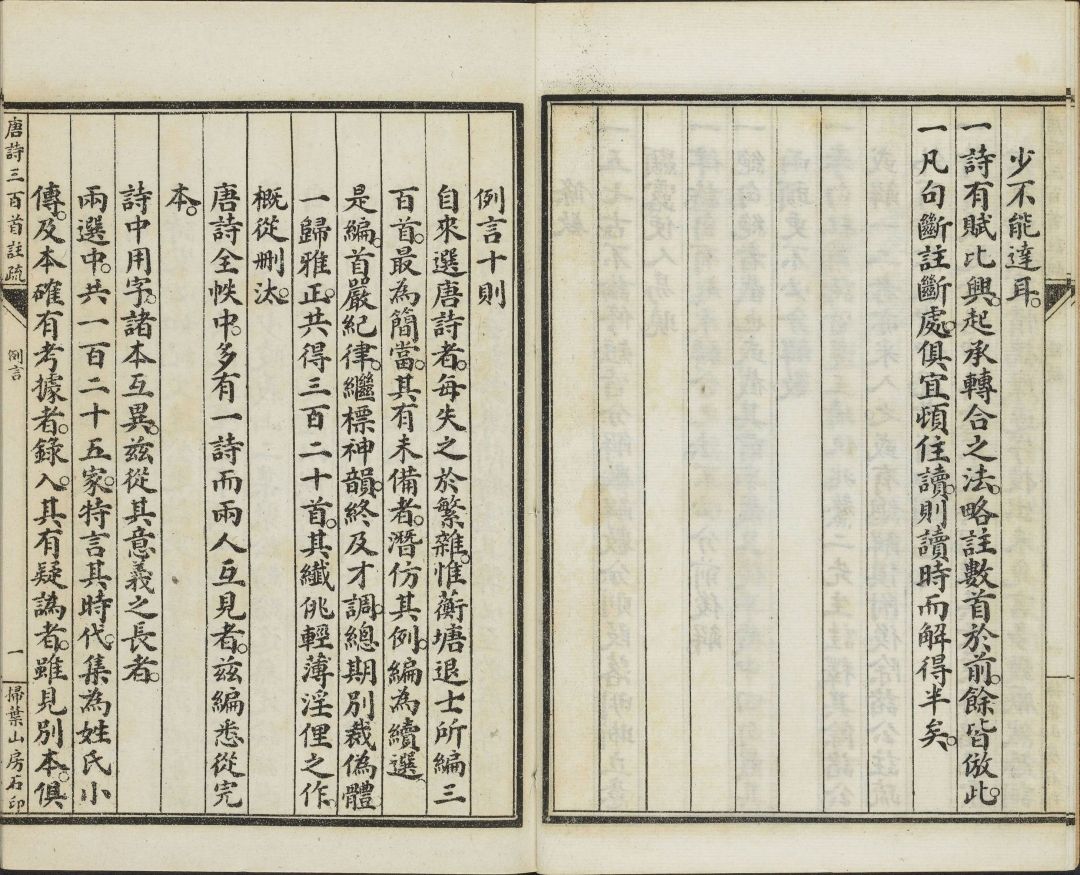 少不能達耳。
一詩有賦比興。起承轉合之法。略註數首於前。餘皆倣此。
一凡句斷註斷處。俱宜頓住讀。則讀時而解得半矣。
例言十則
自來選唐詩者。每失之於繁雜。惟蘅塘退士所編三
百首。最為簡當。其有未備者。潛仿其例。編為續選
是編。首嚴紀律。繼標神韻。終及才調。總期別裁偽體。
一歸雅正。共得三百二十首。其纖佻輕薄淫俚之作。
概從刪汰。
唐詩全帙中。多有一詩而兩人互見者。茲編悉從完
本。
詩中用字。諸本互異。茲從其意義之長者。
兩選中。共一百二十五家。特言其時代。集為姓氏小
傳。及本確有考據者。錄入。其有疑譌者。雖見別本。俱
唐詩三百首註疏
例言
一
掃葉山房石印